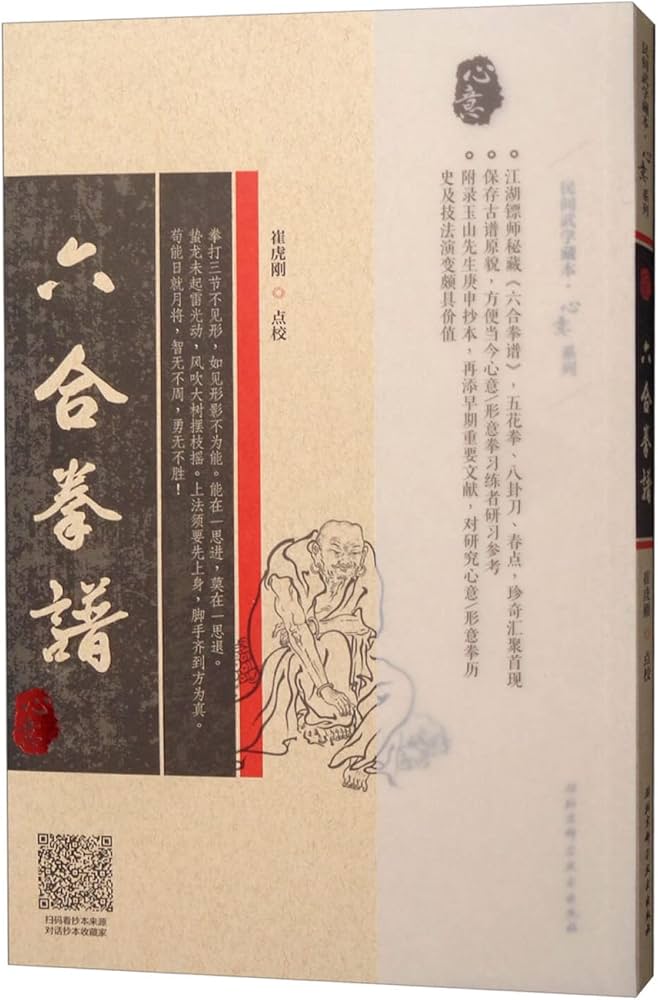 心意
江湖镖师秘藏《六合拳谱》，五花拳、八卦刀、春点，珍奇汇聚首现
保存古谱原貌，方便当今心意/形意拳习练者研习参考
附录玉山先生庚申抄本，再添早期重要文献，对研究心意/形意拳历
史及技法演变颇具价值
民间武学藏本·心意系列
崔虎刚 点校
拳打三节不见形，如见形影不为能。能在一思进，莫在一思退。
蛰龙未起雷先动，风吹大树摆枝摇。上法须要先上身，脚手齐到方为真。
苟能日就月将，智无不周，勇无不胜！
六合拳譜
心意
扫码看抄本来源
对话抄本收藏家
民间武学藏本·心意系列
六合拳譜
崔虎刚 点校